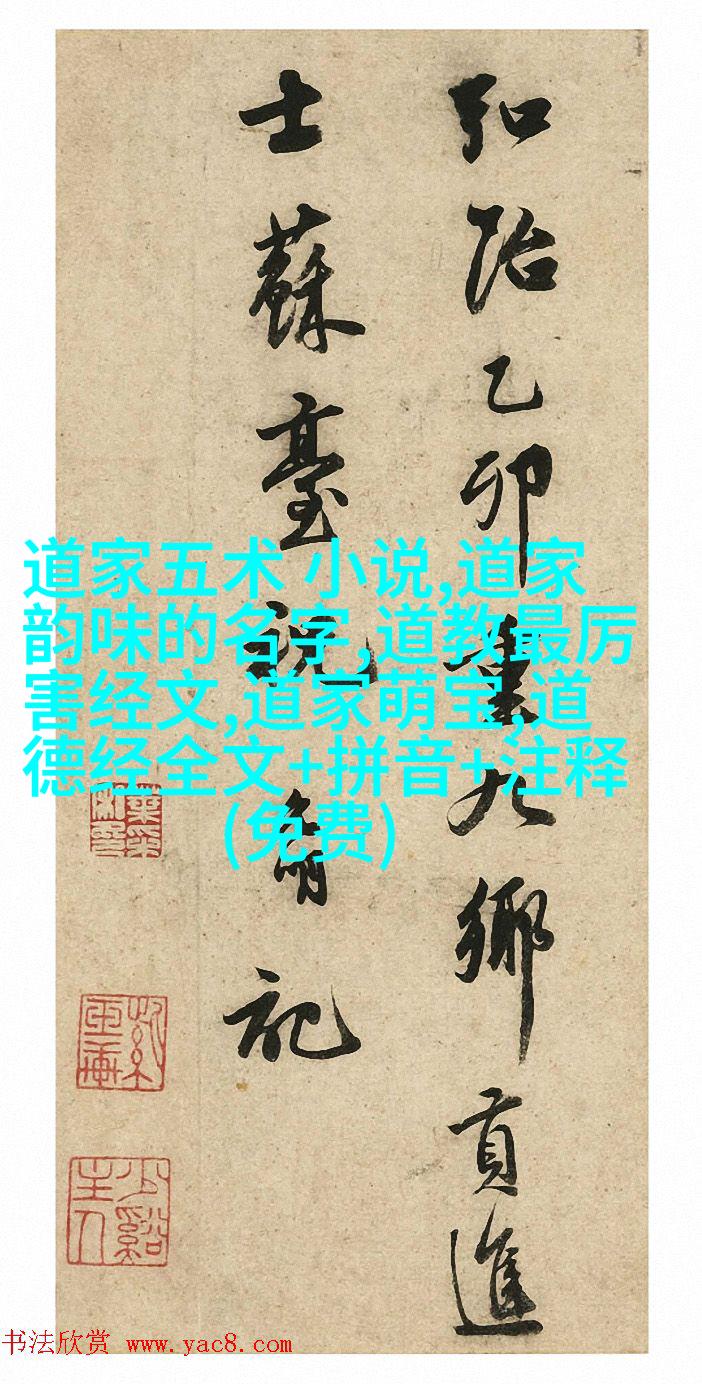 弘治乙卯九鄉貢進
士蘇臺祝允明記
道家五术 小说,道家
韵味的名字,道教最厉
害经文,道家萌宝,道
德经全文+拼音+注释
(免费)
少谿主人
书法欣赏 www.yac8.com